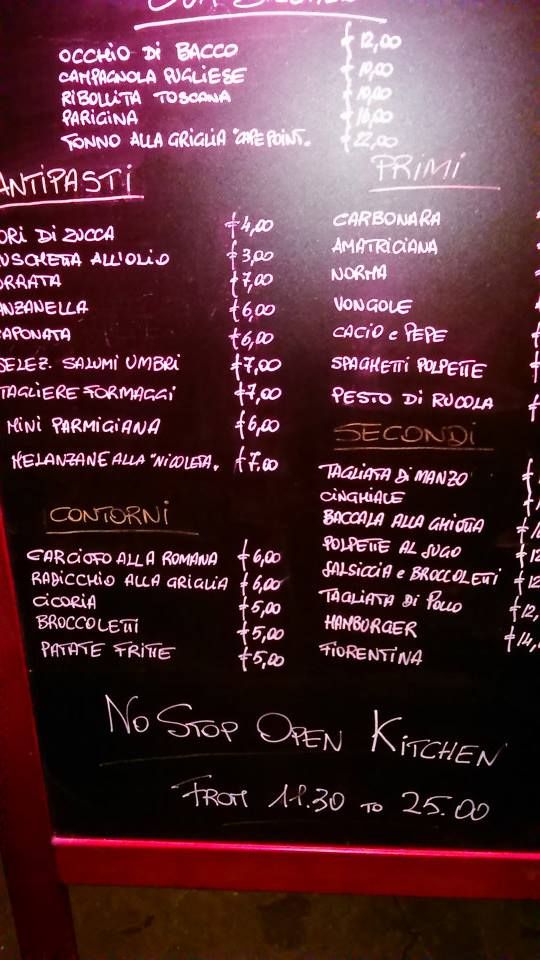 OCCHIO DI BACCO € 12,00
CAMPAGNOLA PUGLIESE € 10,00
RIBOLLITA TOSCANA € 10,00
PARIGINA € 16,00
TONNO ALLA GRIGLIA "CAPE POINT" € 22,00
ANTIPASTI
ORI DI ZUCCA € 4,00
USCHETTA ALL'OLIO € 3,00
RRATA € 7,00
ANZANELLA € 6,00
APONATA € 6,00
SELEZ. SALUMI UMBRI € 7,00
TAGLIERE FORMAGGI € 7,00
MINI PARMIGIANA € 6,00
MELANZANE ALLA "NICOLETA" € 7,00
CONTORNI
CARCIOFO ALLA ROMANA € 6,00
RADICCHIO ALLA GRIGLIA € 6,00
CICORIA € 5,00
BROCCOLETTI € 5,00
PATATE FRITTE € 5,00
PRIMI
CARBONARA €
AMATRICIANA €
NORMA €
VONGOLE €
CACIO e PEPE €
SPAGHETTI POLPETTE €
PESTO DI RUCOLA €
SECONDI
TAGLIATA DI MANZO €
CINGHIALE €
BACCALA ALLA GHIOTTA €
POLPETTE AL SUGO € 12
SALSICCIA e BROCCOLETTI € 12
TAGLIATA DI POLLO € 12,
HAMBURGER € 14,
FIORENTINA
NO STOP OPEN KITCHEN
FROM 11.30 TO 25.00